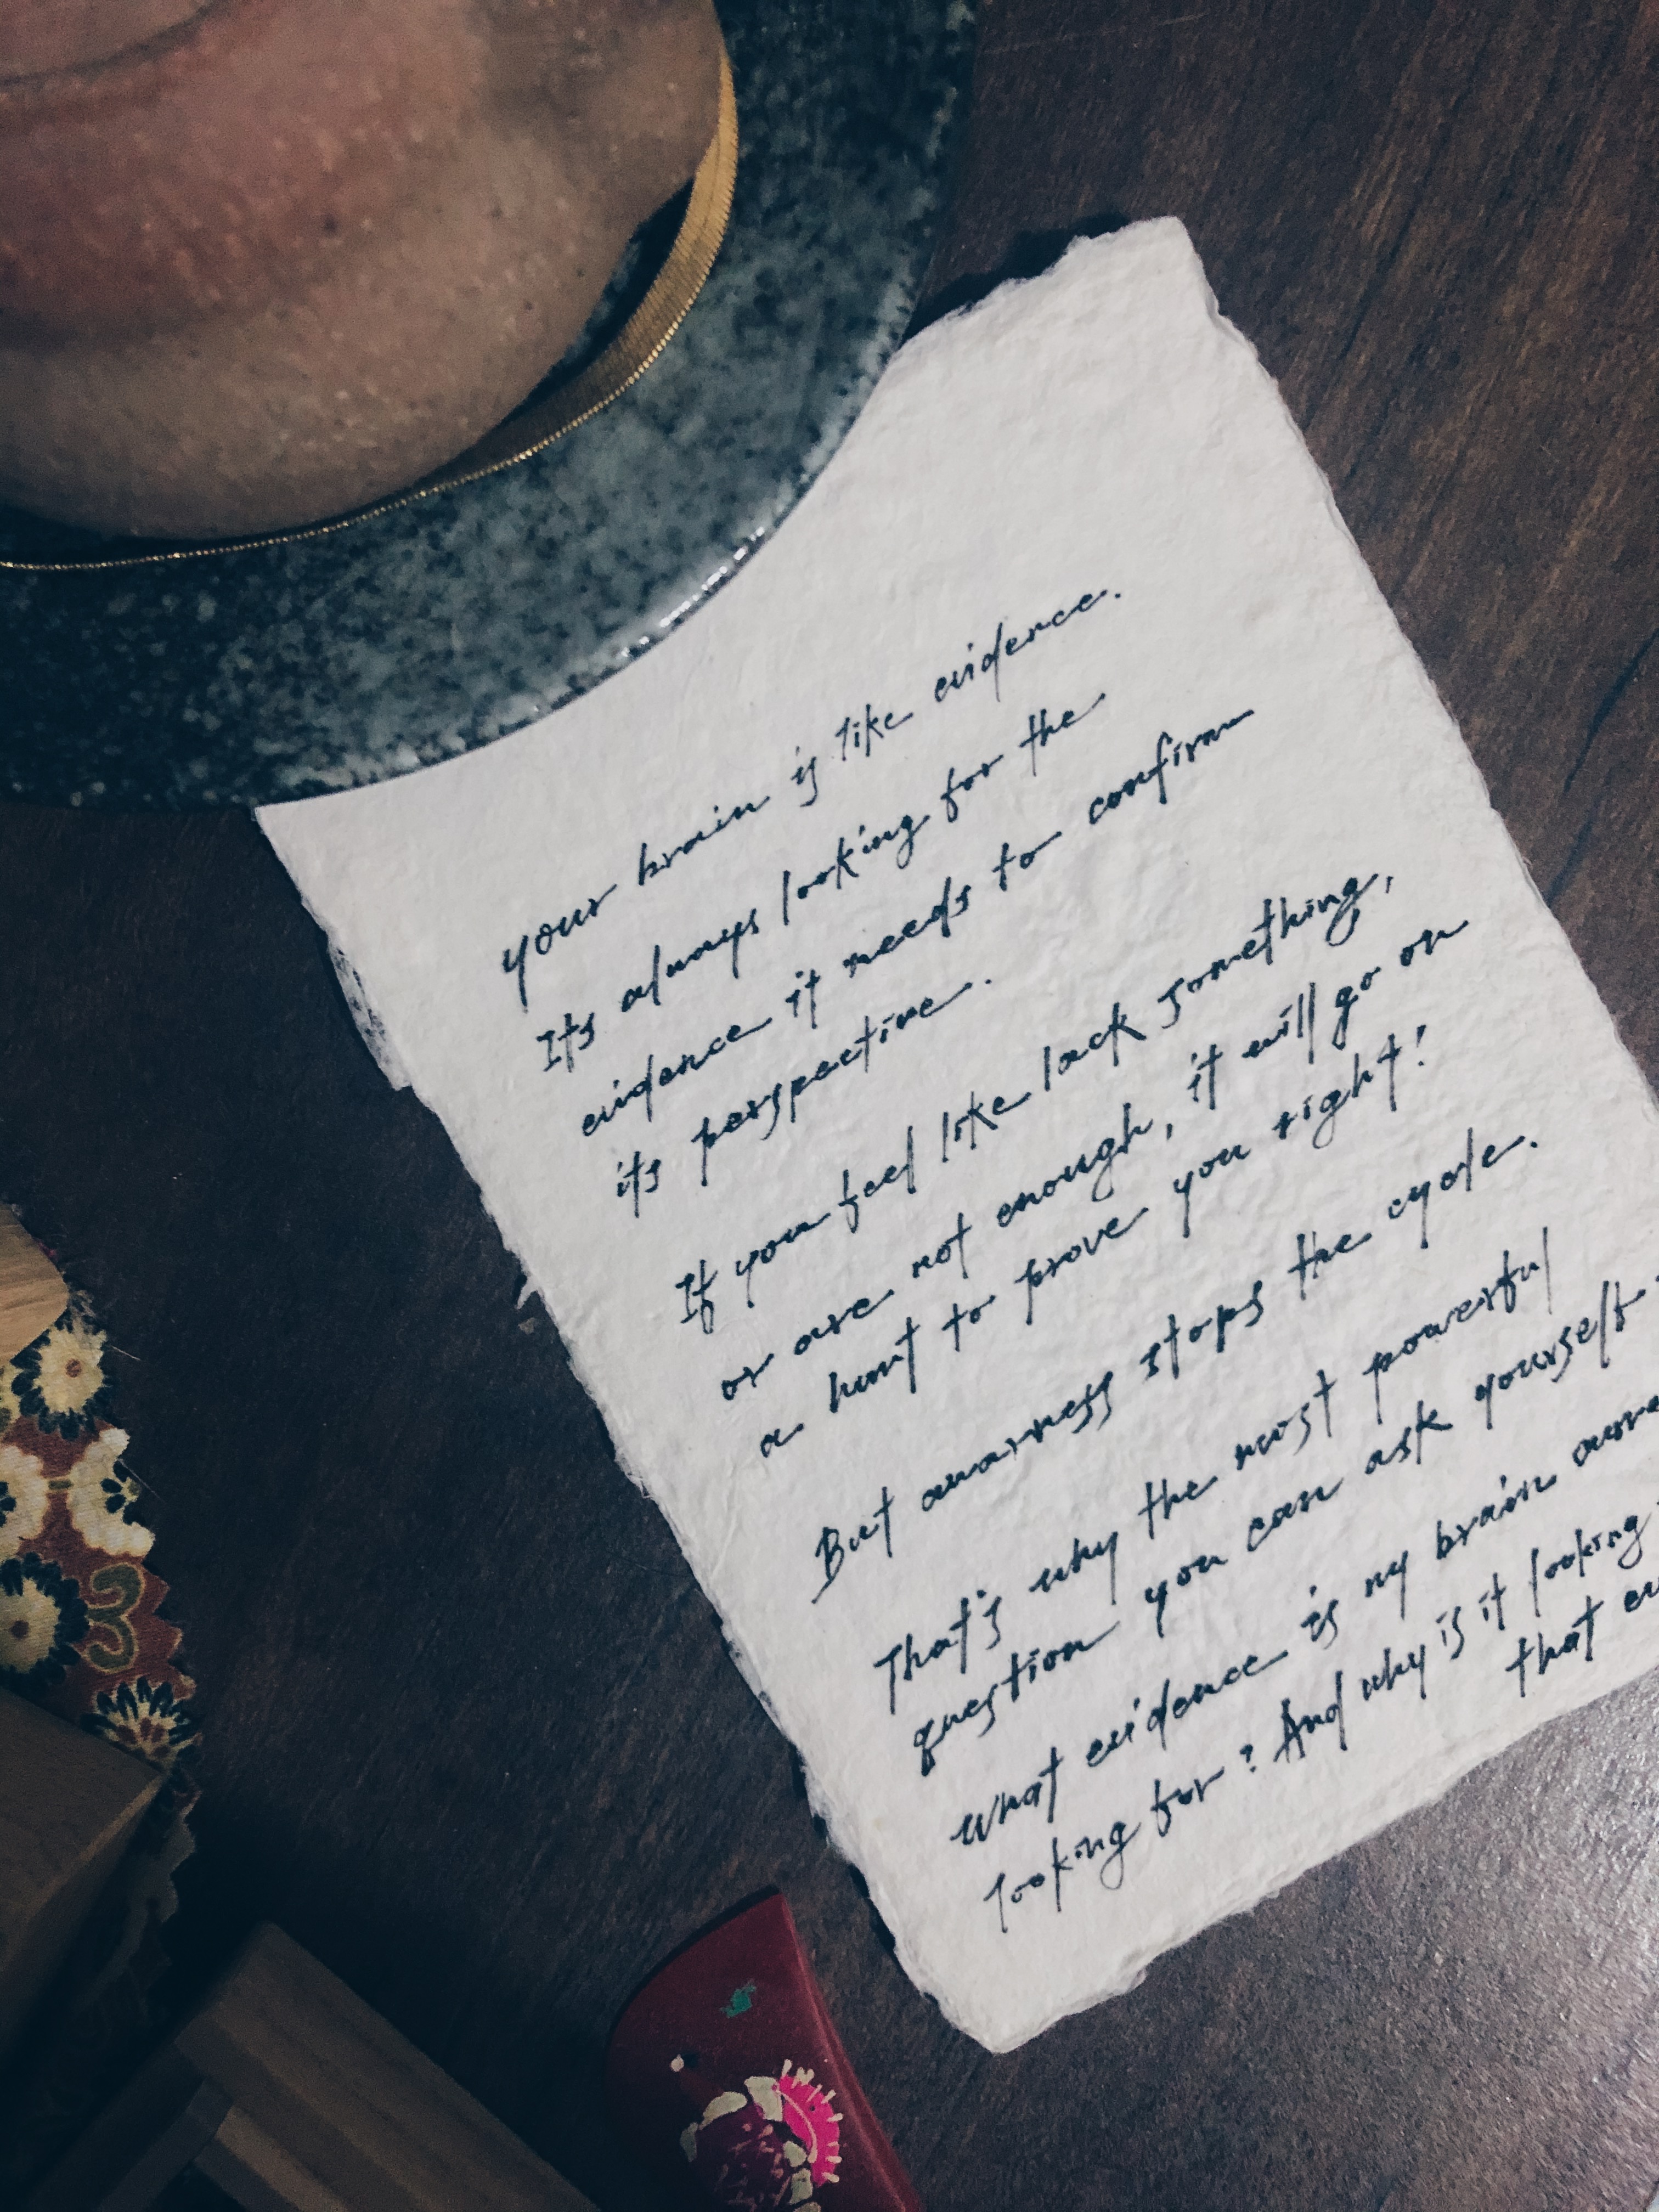 your brain is like evidence.
Its always looking for the
evidence it needs to confirm
its perspective.
If you feel like lack something,
or are not enough, it will go on
a hunt to prove you right!
But awarness stops the cycle.
That's why the most powerful
question you can ask yourself
What evidence is my brain
looking for? And why is it looking
that